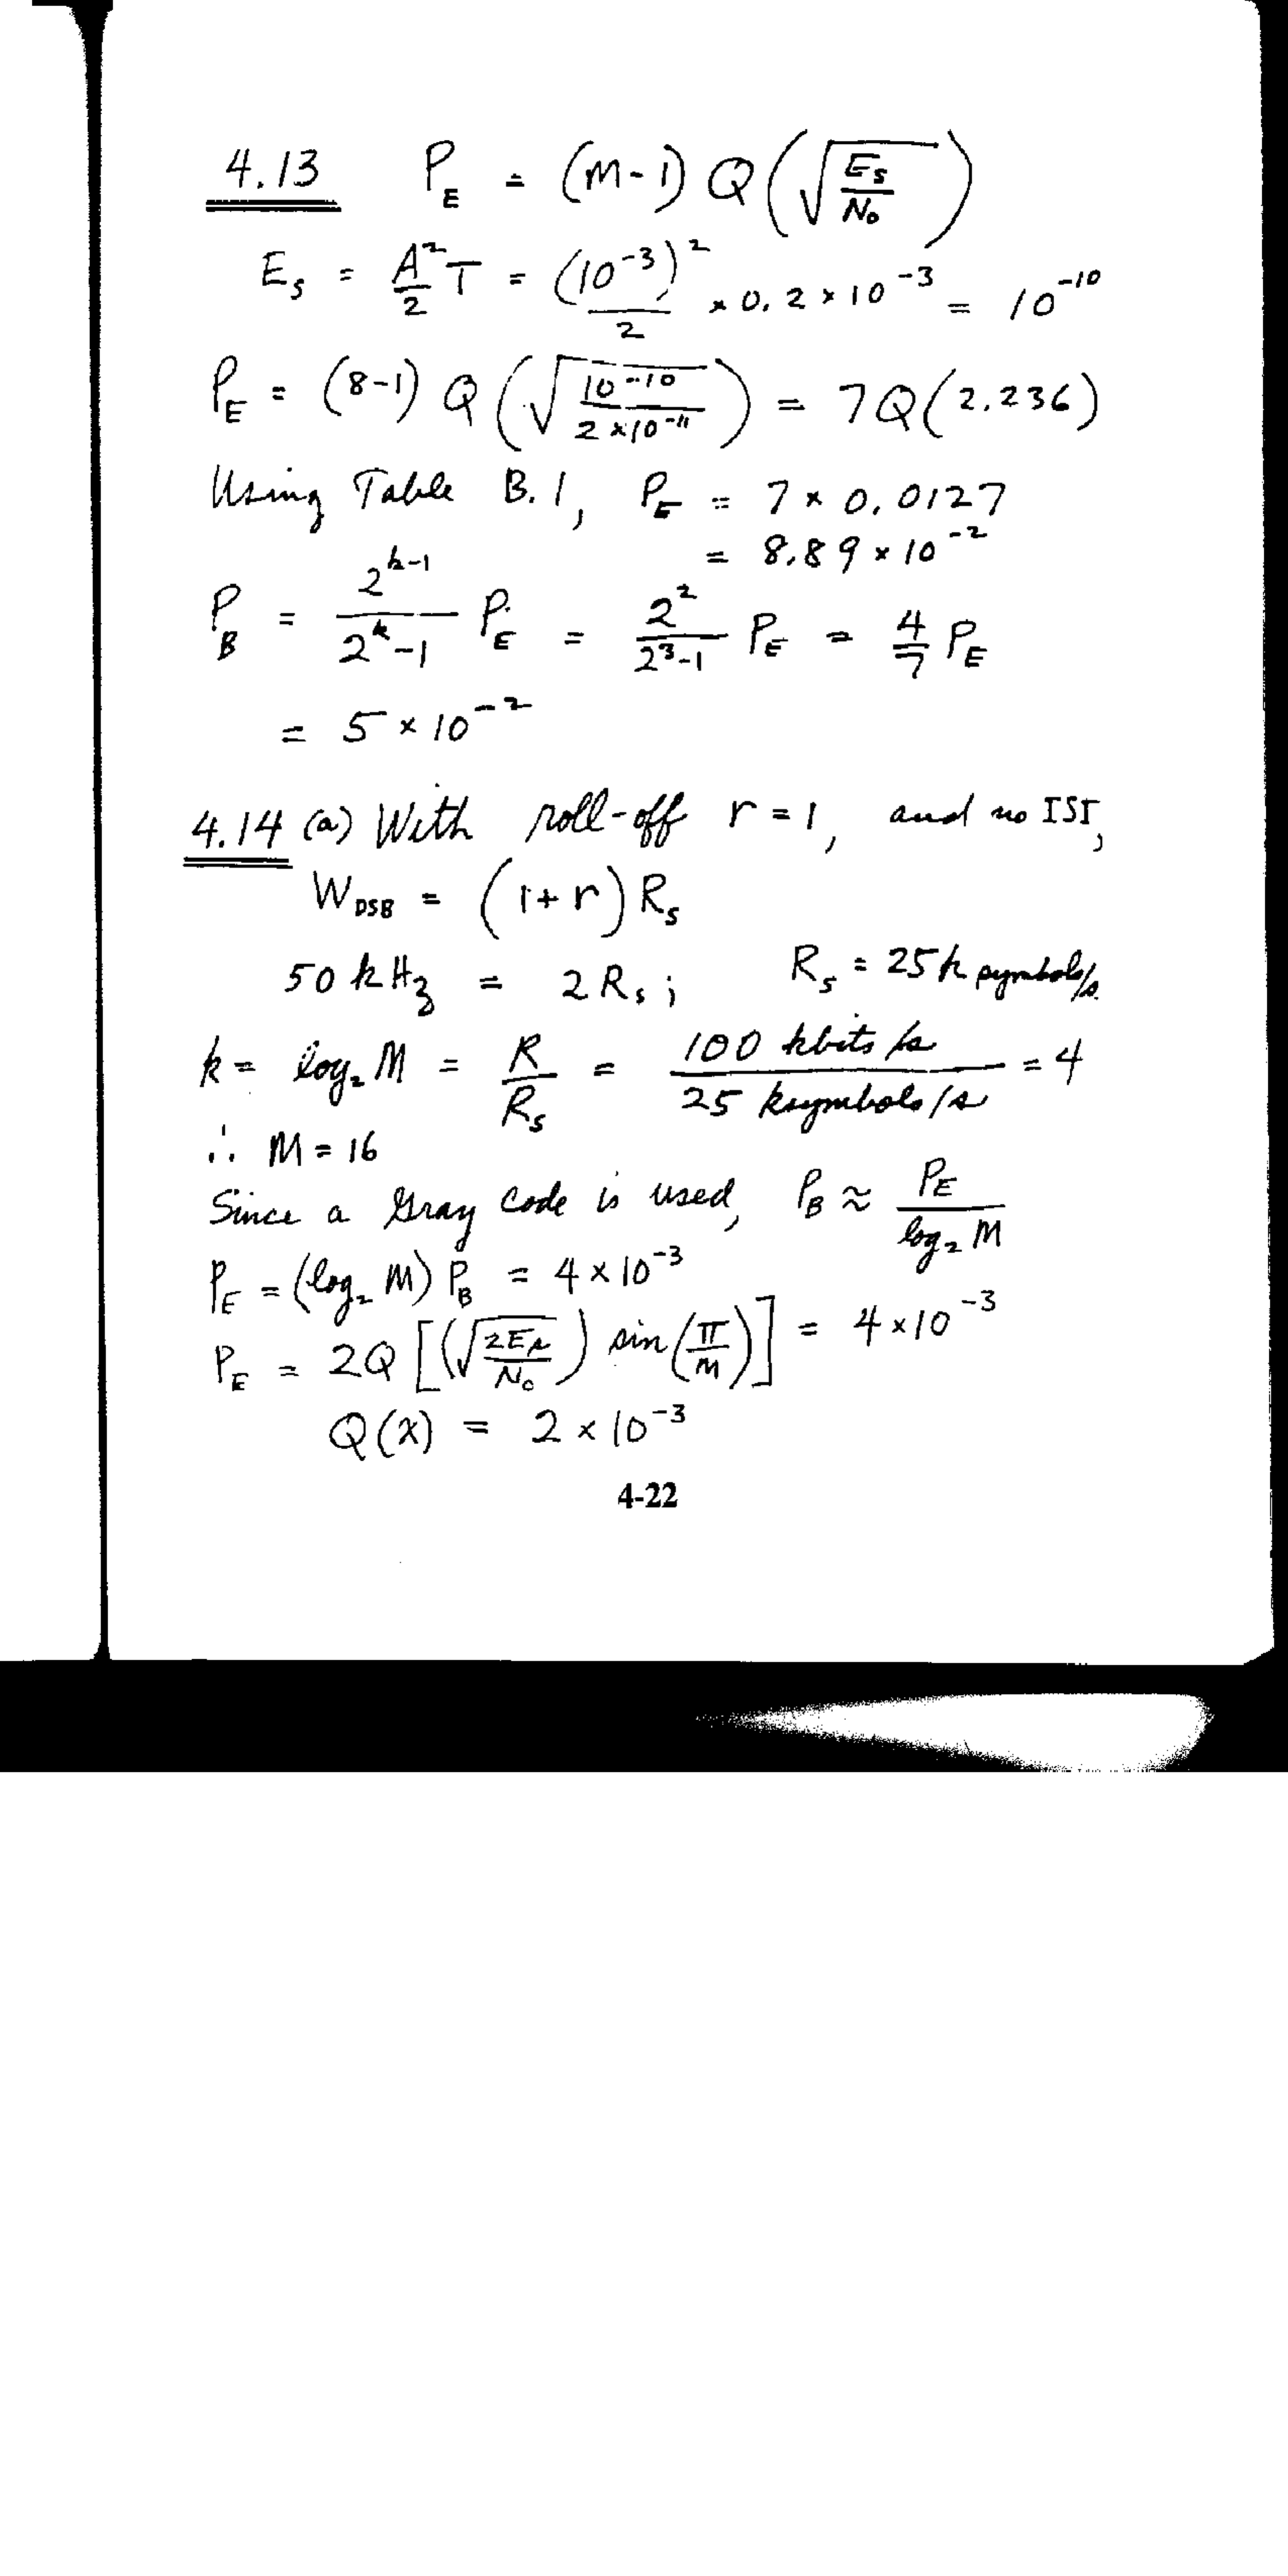 4.13 P_E = (M-1) Q(√(E_s/N_0))
E_s = A²/2 T = (10^-3)²/2 × 0.2 × 10^-3 = 10^-10
P_E = (8-1) Q(√(10^-10 / 2×10^-11)) = 7Q(2.236)
Using Table B.1, P_E = 7 × 0.0127
= 8.89 × 10^-2
P_B = 2^(k-1)/(2^k-1) P_E = 2²/(2³-1) P_E = 4/7 P_E
= 5 × 10^-2
4.14 (a) With roll-off r = 1, and no ISI,
W_DSB = (1+r) R_s
50 kHz = 2 R_s ; R_s = 25 k symbols/s.
k = log_2 M = R/R_s = 100 kbits/s / 25 ksymbols/s = 4
∴ M = 16
Since a Gray code is used, P_B ≈ P_E / log_2 M
P_E = (log_2 M) P_B = 4 × 10^-3
P_E = 2Q[(√(2E_s/N_0)) sin(π/M)] = 4 × 10^-3
Q(x) = 2 × 10^-3
4-22